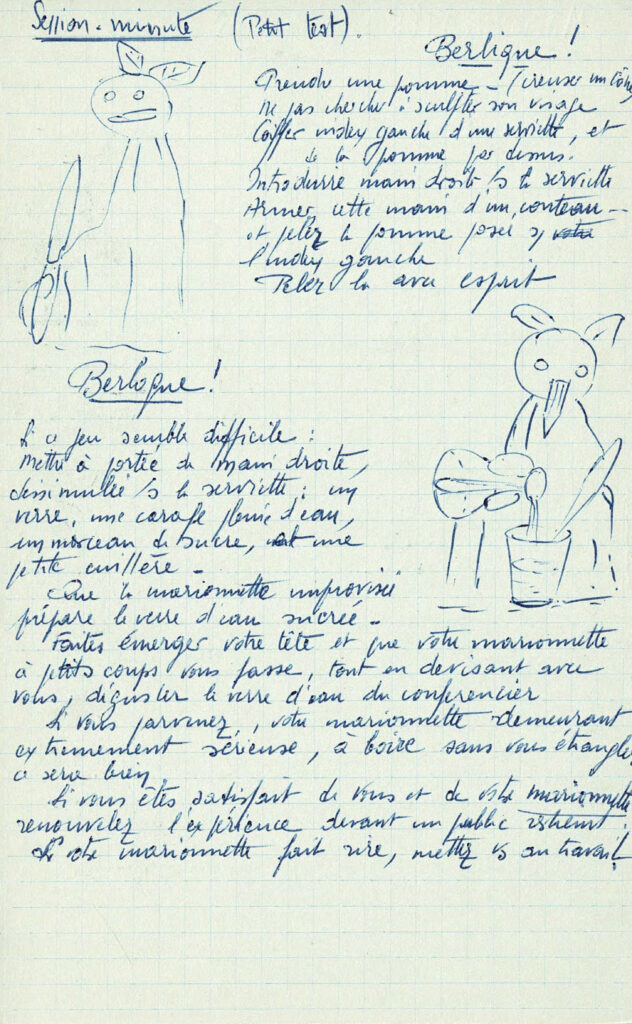 Session-minute (Petit test).
Berlique !
Prendre une pomme - (creuser un côté)
ne pas chercher à sculpter son visage
Coiffer index gauche d'une serviette, et
de la pomme par dessus.
Introduire main droite /s la serviette
Armer cette main d'un couteau -
et pelez la pomme posée s/ votre
l'index gauche
Pelez la avec esprit
Berloque !
Si ce jeu semble difficile :
Mettre à portée de main droite,
dissimulée /s la serviette : un
verre, une carafe pleine d'eau,
un morceau de sucre, et une
petite cuillère -
Que la marionnette improvisée
prépare le verre d'eau sucrée -
Faites émerger votre tête et que votre marionnette
à petits coups vous fasse, tout en devisant avec
vous, déguster le verre d'eau du conférencier
Si vous parvenez, votre marionnette demeurant
extrêmement sérieuse, à boire sans vous étrangler
ce sera bien
Si vous êtes satisfait de vous et de votre marionnette
renouvelez l'expérience devant un public restreint.
Si votre marionnette fait rire, mettez vs au travail !